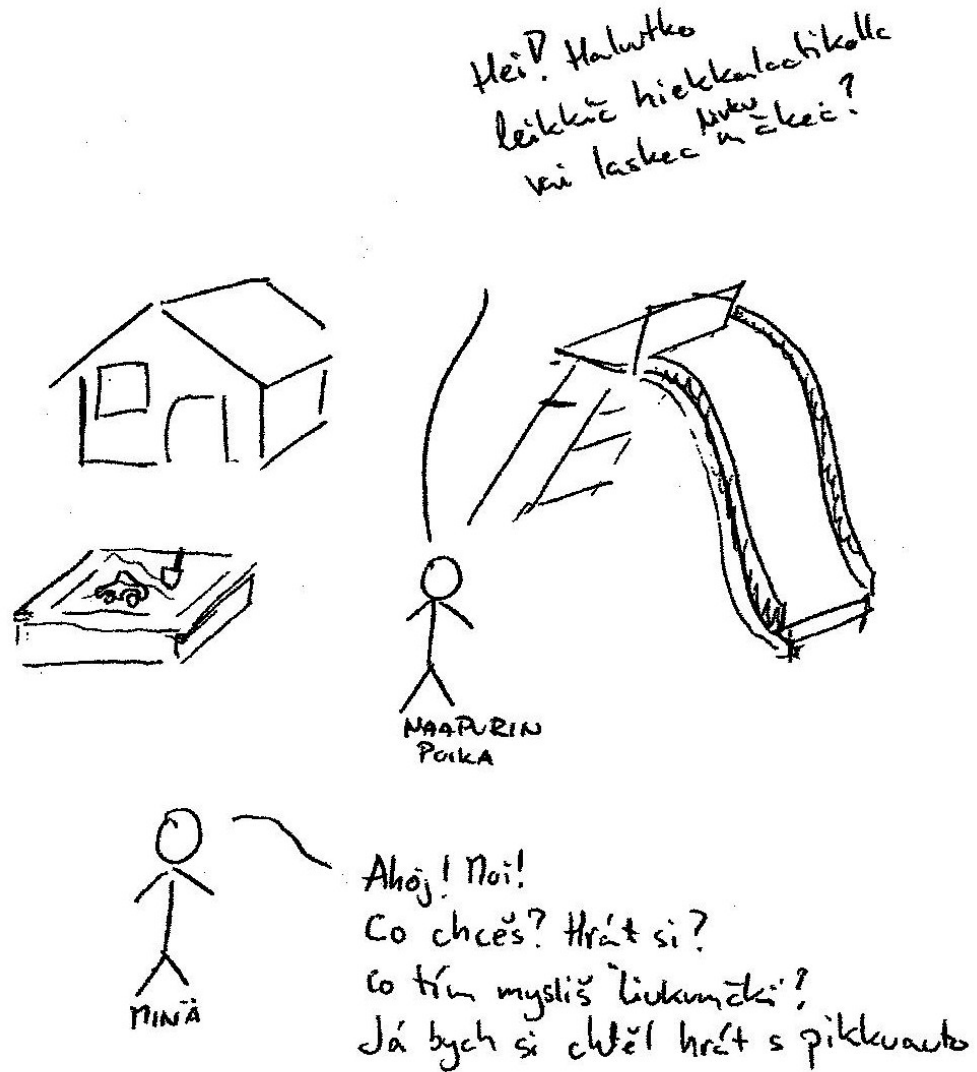 Hei! Haluatko
leikkiä hiekkalaatikolla
vai laskea liukumäkeä?
NAAPURIN
POIKA
Ahoj! Moi!
Co chceš? Hrát si?
Co tím mysliš "liukumäki"?
Já bych si chtěl hrát s pikkuauto
MINÄ